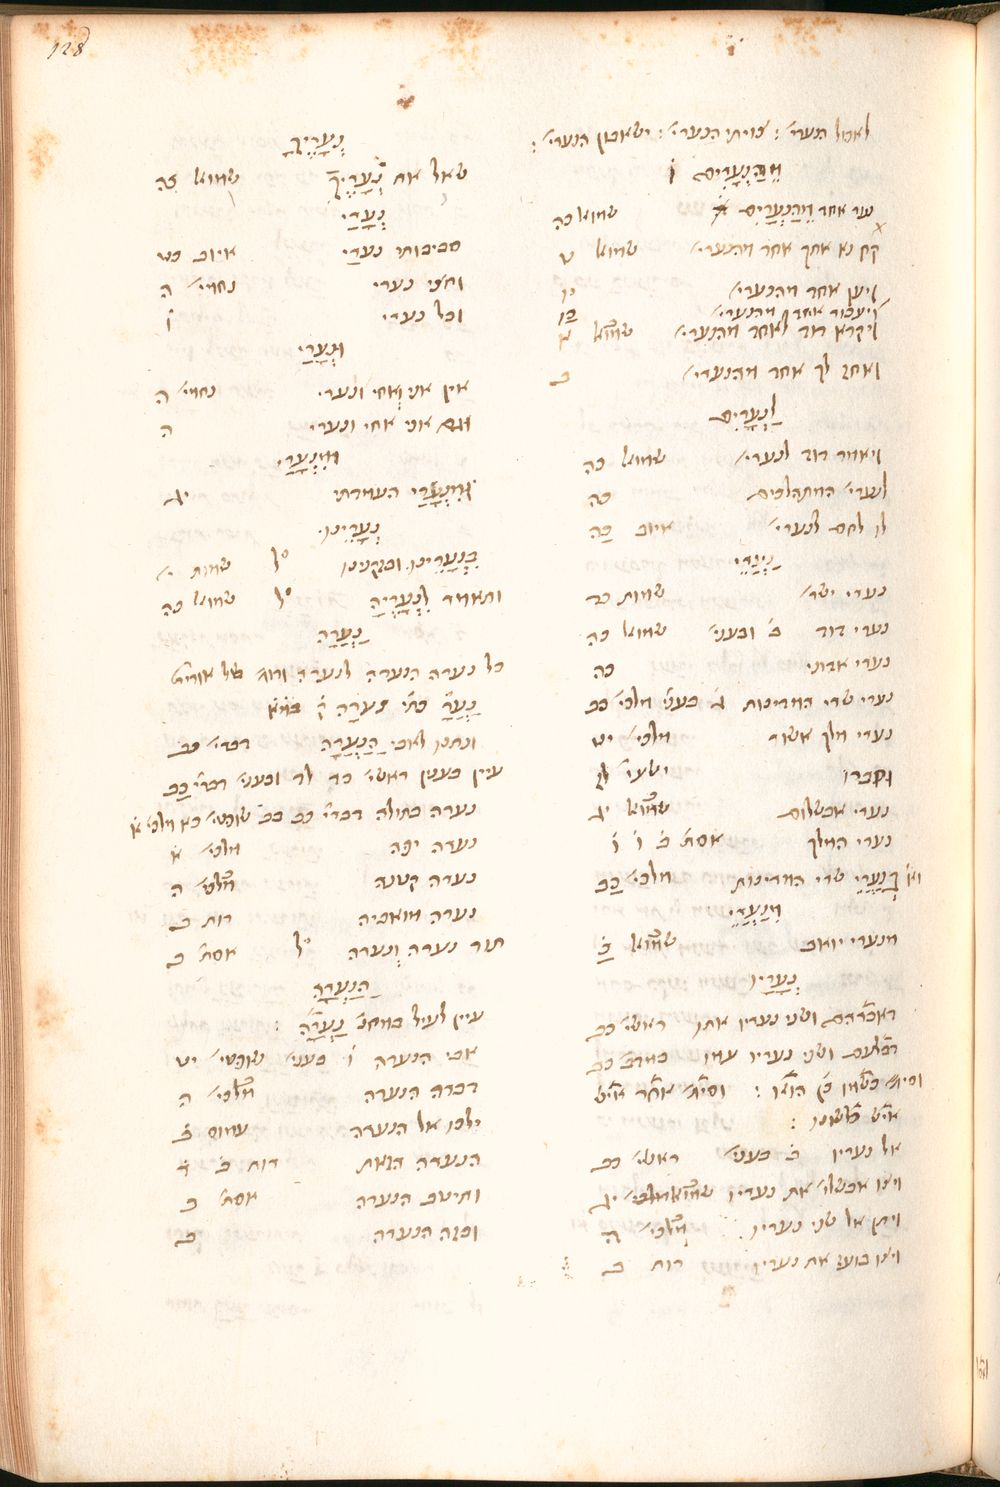 128
לאכול הנערי׳ : צויתי הנערי׳ : ישאכון הנערי׳ :
מֵהַנְּעָרִים ו
נער אחד מֵהַנְּעָרִים שמוא׳ כה
קח נא אתך אחד מהנערי׳ שמוא׳ ט
ויען אחד מהנערי׳ יו
ויעבור אחד מהנערי׳ כו
ויקרא דוד לאחד מהנערי׳ שמוא׳ א
ואחז לך אחד מהנערי׳ ב
לַנְּעָרִים
ויאמר דוד לנערי׳ שמוא׳ כה
לנערי׳ המתהלכים כה
לו לקם לנערי׳ איוב כה
נַעֲרֵי
נערי ישר׳ שמות כד
נערי דוד ב׳ ובעני׳ שמוא׳ כה
נערי אדוני כה
נערי שרי המדינות ג׳ בעני׳ מלכי׳ כב
נערי מלך אשור מלכי׳ יט
וחברו ישעי׳ לז
נערי אבשלום שמוא׳ יג
נערי המלך אסת׳ ב׳ ו ו
בְּנַעֲרֵי שרי המדינות מלכי׳ כב
מִנַּעֲרֵי
מנערי יואב שמוא׳ ב
נְעָרָיו
דאברהם ושני נעריו אתו ראשי׳ כב
דבלעם ושני נעריו עמו במדב׳ כב
איש לשונו :
אל נעריו ב׳ בעני׳ ראשי׳ כב
ויצו אבשלו׳ את נעריו שמוא׳ יג
ויתן אל שני נעריו מלכי׳ ה
ויצו בועז את נעריו רות ב
נְעָרֶיךָ
שאל את נְעָרֶיךָ שמוא׳ כה
נְעָרַי
סביבותי נערַי איוב כט
וחצי נערי נחמי׳ ה
וכל נערי ו
וּנְעָרַי
אין אני ואחי ונערי נחמי׳ ה
וגם אני אחי ונערי ה
וּמִנְּעָרַי
וּמִנְּעָרַי העמדתי יג
נְעָרֵינוּ
בִּנְעָרֵינוּ ובזקנינו ל׳ שמות י
ותאמר לִנְעָרֶיהָ ל׳ שמוא׳ כה
נַעֲרָה
כל נערה הנערה לנערה
נַעֲרָ כתי׳ נערָה ק׳
ונתנו לאבי הַנַּעֲרָה דברי׳ כב
עיין בענין ראשי׳ כד לד ובעני׳ דברי׳ כב
נערה בתולה דברי׳ כב כב שופטי׳ כא מלכי׳ א
נערה יפה מלכי׳ א
נערה קטנה מלכי׳ ה
נערה מואביה רות ב
תור נערה ונערה ל׳ אסת׳ ב
הַנַּעֲרָה
עיין לעיל במחנ׳ נַעֲרָה :
אבי הנערה ו׳ בעני׳ שופטי׳ יט
דברה הנערה מלכי׳ ה
ילכו אל הנערה עמוס ב
הנערה הזאת רות ב׳ ד
ותיטב הנערה אסת׳ ב
ובזה הנערה ב